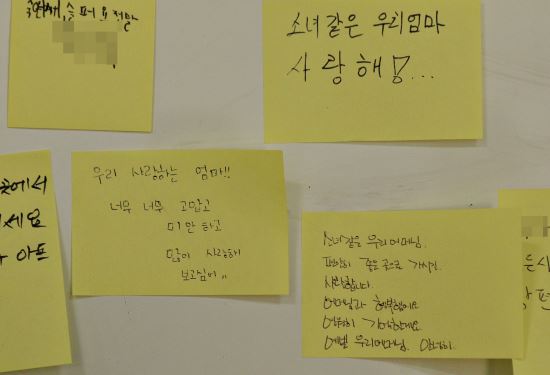 슬퍼요 정말
소녀같은 우리엄마
사랑해 !...
곳에서
세요
아프
우리 사랑하는 엄마!!
너무 너무 고맙고
미안하고
많이 사랑해
보고싶어..
소녀같은 우리어머님.
편안히 좋은 곳으로 가시길.
사랑합니다.
어머님과 행복했어요
영원히 기억할게요
예쁜 우리어머님. 안녕히.
편